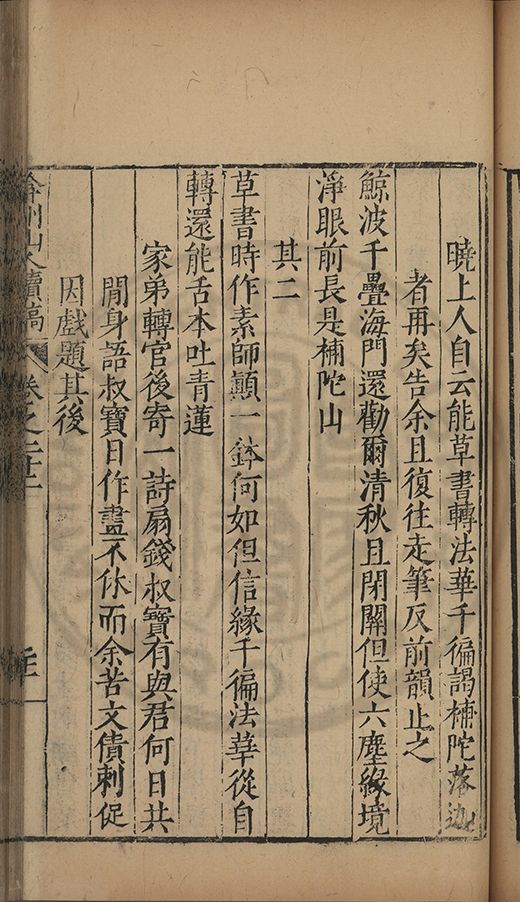 曉上人自云能草書轉法華千徧謁補陀落迦
者再矣告余且復往走筆反前韻止之
鯨波千疊海門還勸爾清秋且閉關但使六塵緣境
淨眼前長是補陀山
其二
草書時作素師顛一鉢何如但信緣千徧法華從自
轉還能舌本吐青蓮
家弟轉官後寄一詩扇錢叔寶有與君何日共
閒身語叔寶日作畫不休而余苦文債刺促
因戲題其後
弇州山人續稿 卷之二十二